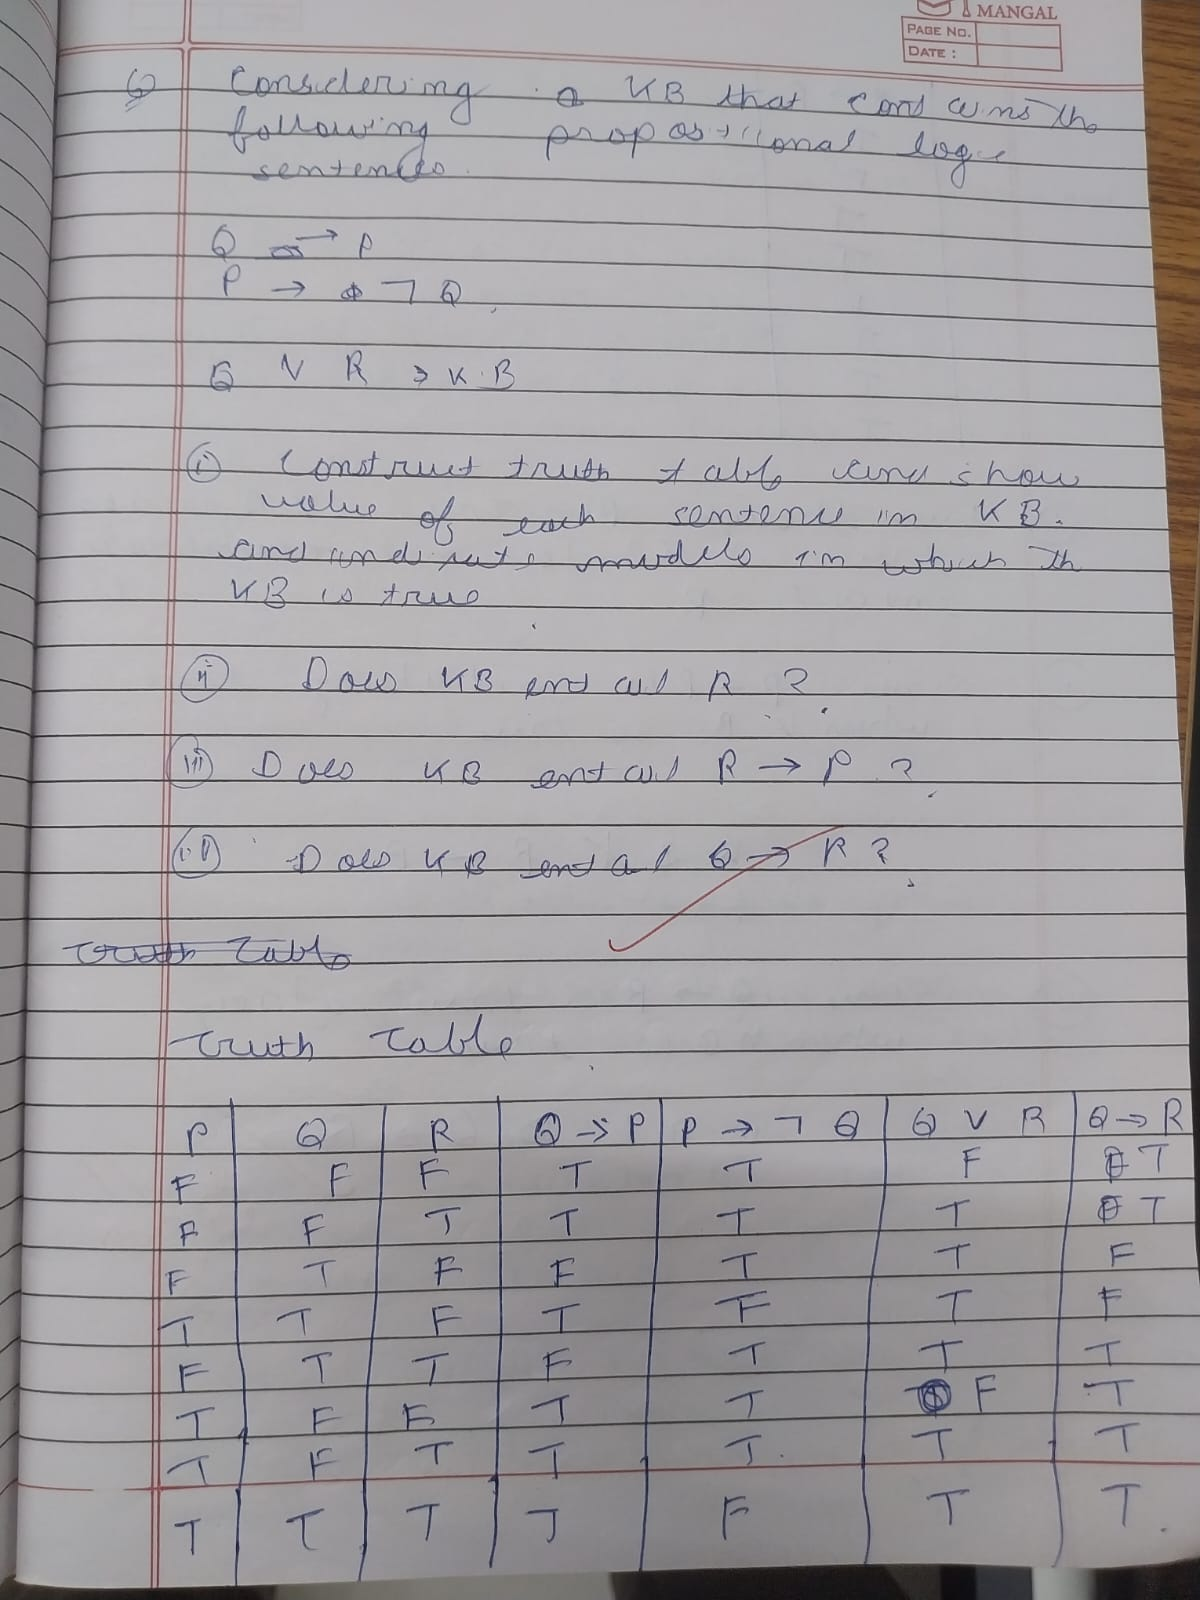 MANGAL
PAGE NO.
DATE :
Q Considering a KB that contains the
following propositional logic
sentences.
Q → P
P → ¬ Q
Q V R → K B
(i) Construct truth table and show
value of each sentence in KB.
and indicate models in which th
KB is true
(ii) Does KB entail R ?
(iii) Does KB entail R → P ?
(iv) Does KB entail Q → R ?
Truth Table
Truth Table
P Q R Q → P P → ¬ Q Q V R Q → R
F F F T T F T
F F T T T T T
F T F F T T F
T T F T F T F
F T T F T T T
T F F T T F T
T F T T T T T
T T T T F T T